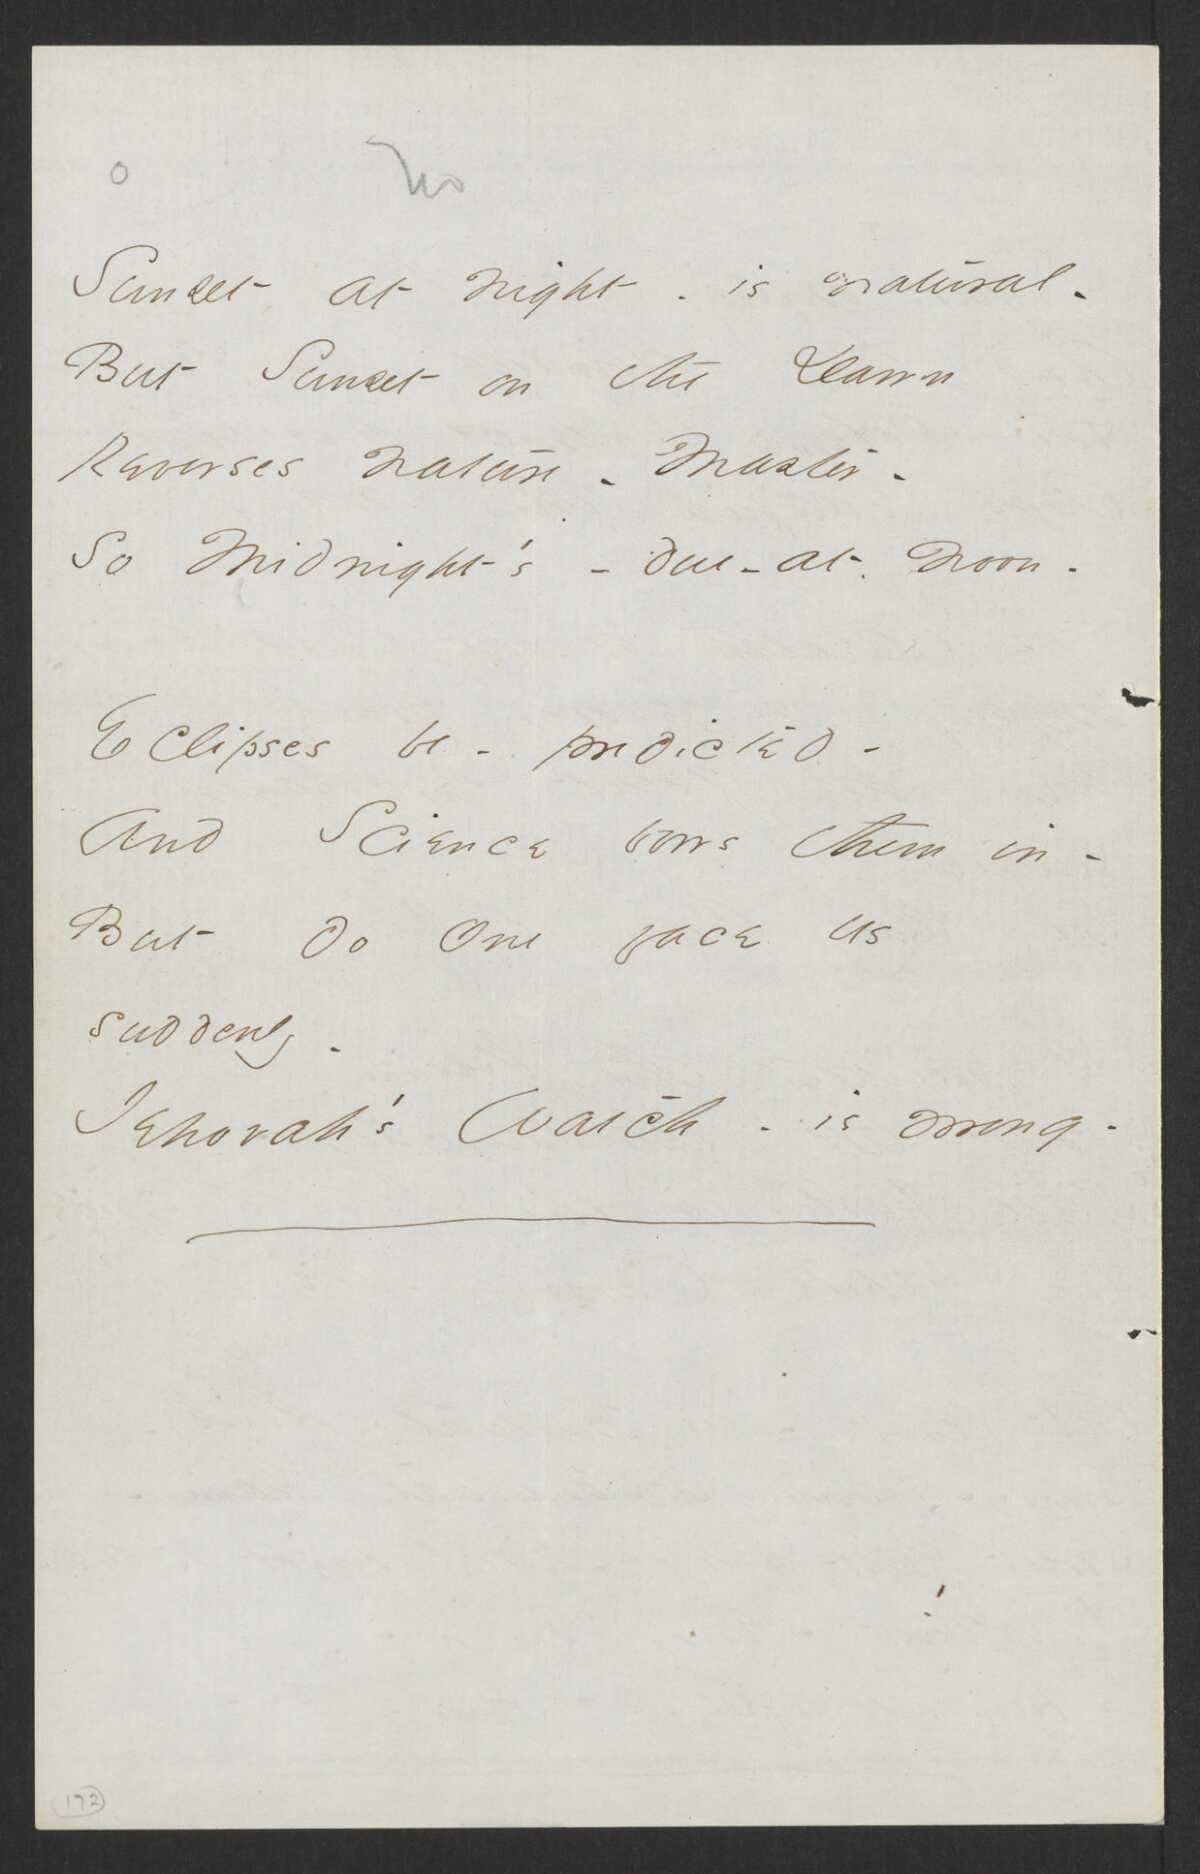 o No
Sunset at Night - is natural -
But Sunset on the Dawn
Reverses Nature - Master -
So Midnight's - due - at Noon -
Eclipses be - predicted -
And Science bows them in -
But do One face us
suddenly -
Jehovah's Watch - is wrong -
172